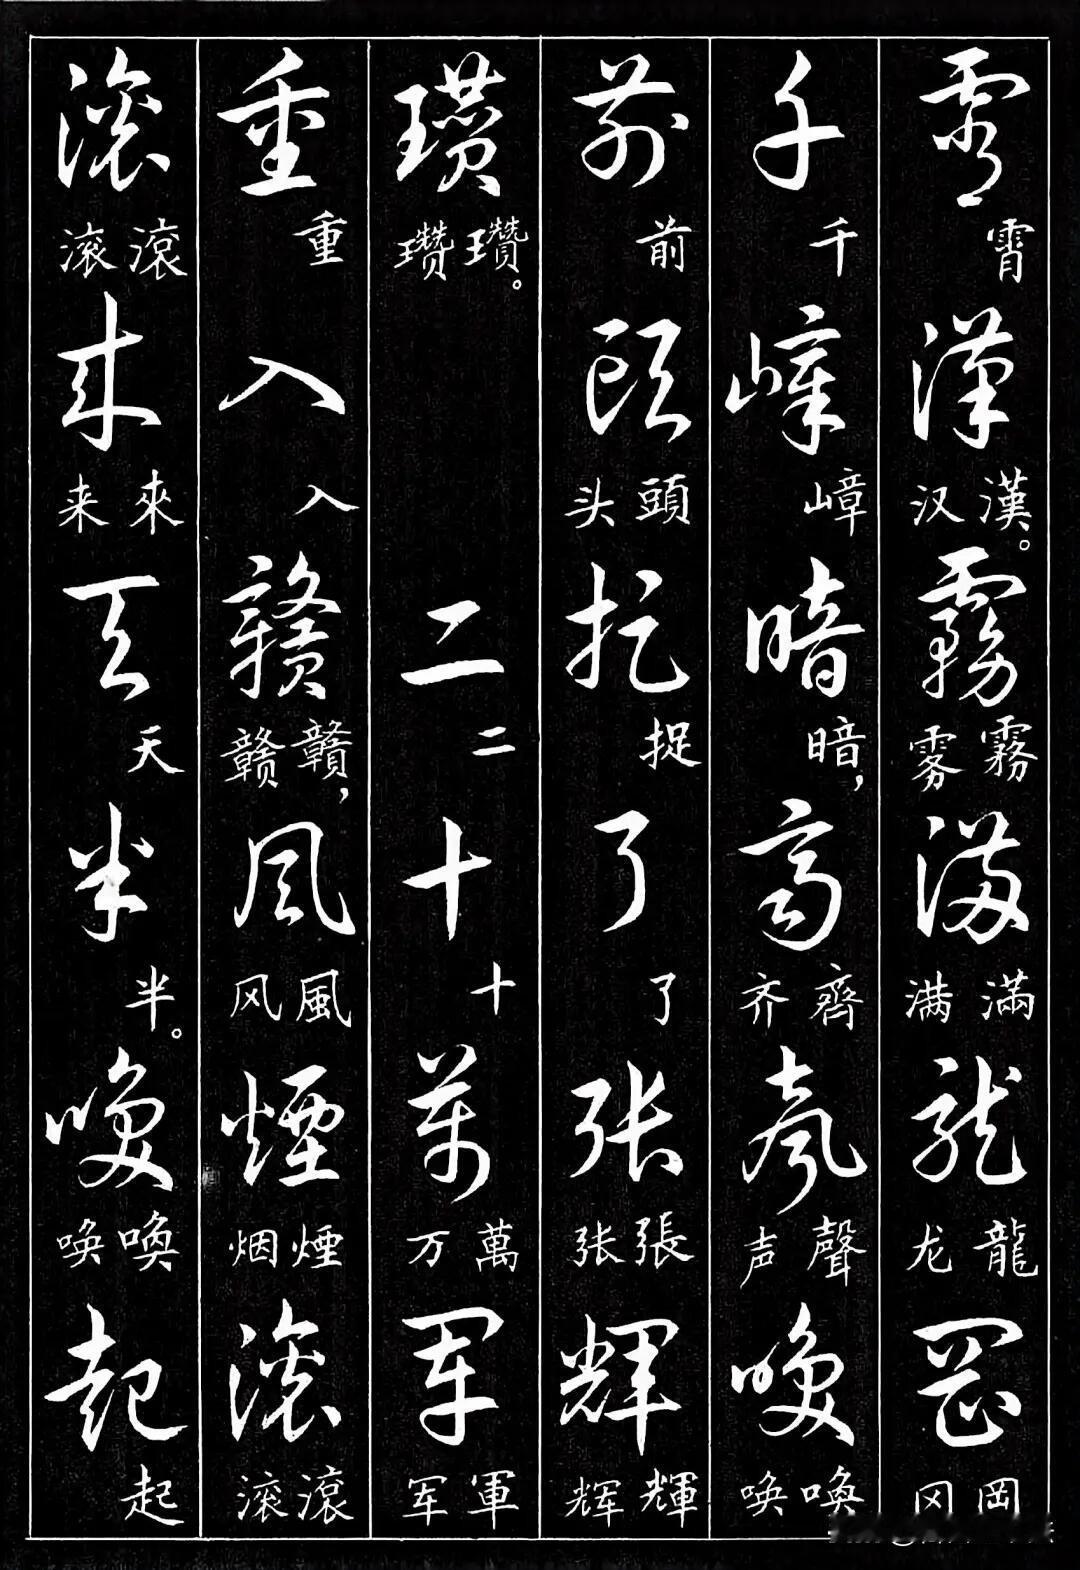 霄 霄 漢 汉 漢。 霧 雾 霧 滿 满 滿 龍 龙 龍 岡 冈 岡
千 千 嶂 嶂 暗 暗， 齊 齐 齊 聲 声 聲 喚 唤 喚
前 前 頭 头 頭 捉 捉 了 了 張 张 張 輝 辉 輝
瓚 瓒 瓚。 二 二 十 十 萬 万 萬 軍 军 軍
重 重 入 入 贛 赣 贛， 風 风 風 煙 烟 煙 滾 滚 滾
滾 滚 滾 來 来 來 天 天 半 半。 喚 唤 喚 起 起